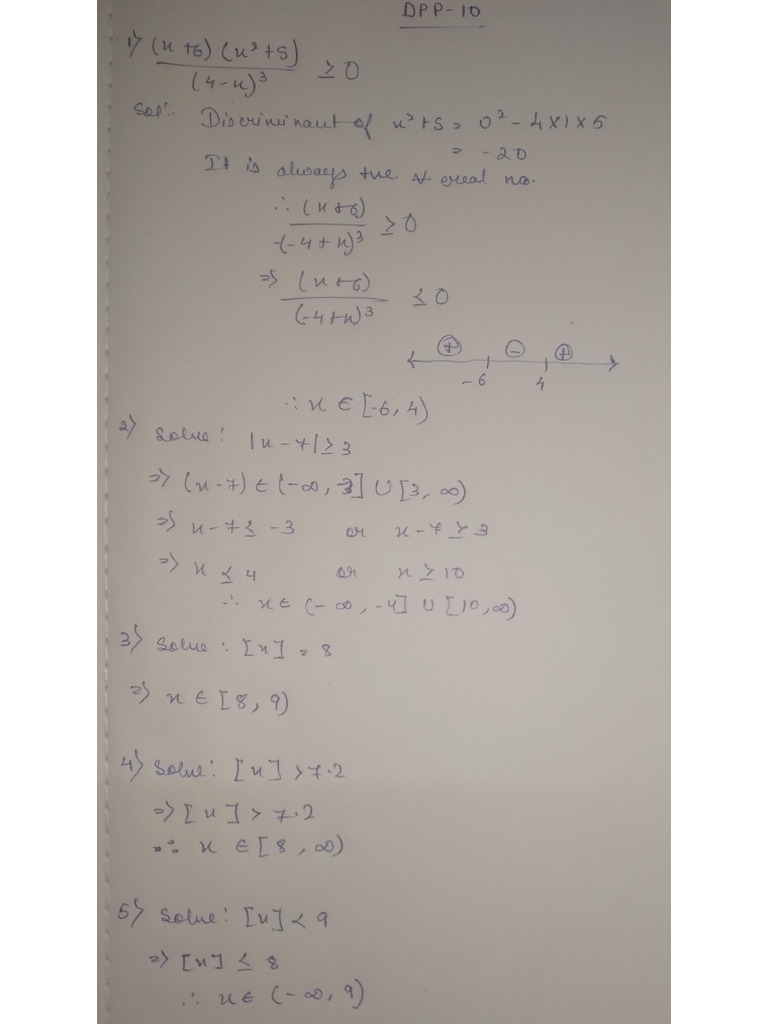 DPP-10
1) (x+6) (x²+5) / (4-x)³ ≥ 0
Solⁿ:- Discriminant of x²+5 = 0² - 4×1×5
= -20
It is always +ve ∀ real no.
∴ (x+6) / -(-4+x)³ ≥ 0
⇒ (x+6) / (-4+x)³ ≤ 0
+ - +
-6 4
∴ x ∈ [-6, 4)
2) Solve: |x-7| ≥ 3
⇒ (x-7) ∈ (-∞, -3] ∪ [3, ∞)
⇒ x-7 ≤ -3 or x-7 ≥ 3
⇒ x ≤ 4 or x ≥ 10
∴ x ∈ (-∞, -4] ∪ [10, ∞)
3) Solve: [x] = 8
⇒ x ∈ [8, 9)
4) Solve: [x] > 7.2
⇒ [x] > 7.2
∴ x ∈ [8, ∞)
5) Solve: [x] < 9
⇒ [x] ≤ 8
∴ x ∈ (-∞, 9)